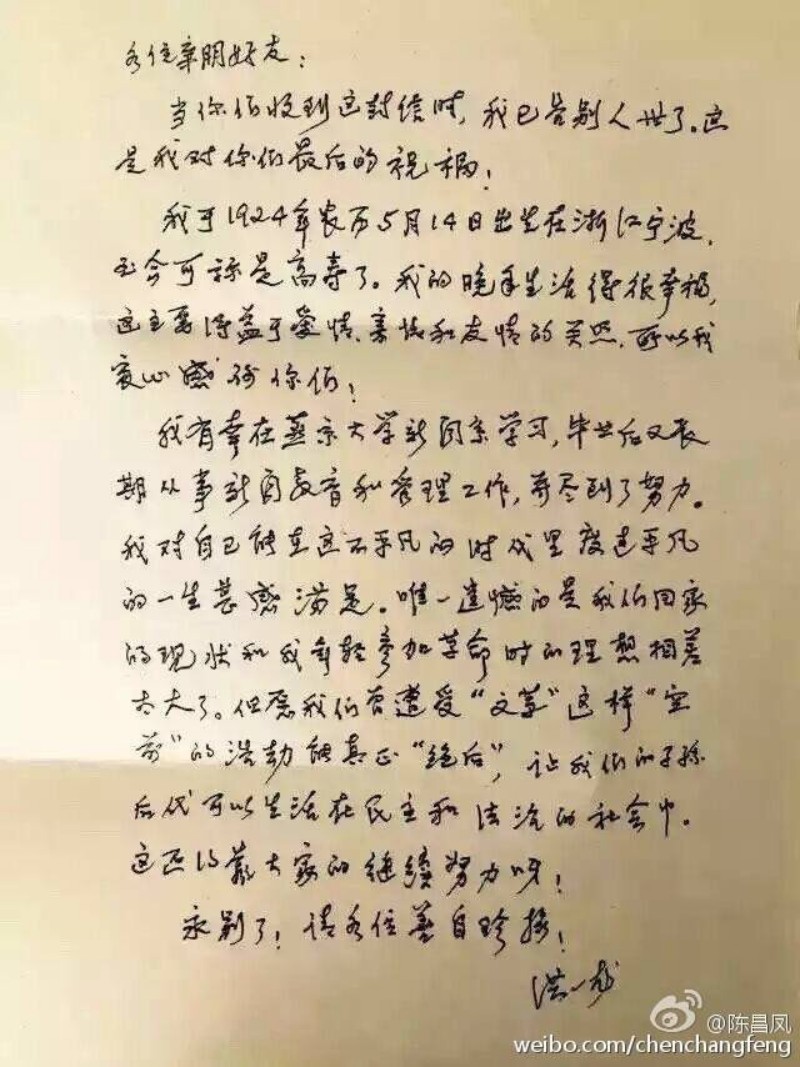 各位亲朋好友：
当你们收到这封信时，我已告别人世了。这
是我对你们最后的祝福！
我于1924年农历5月14日出生在浙江宁波，
至今可称是高寿了。我的晚年生活得很幸福，
这主要得益于爱情、亲情和友情的关照，所以我
衷心感谢你们！
我有幸在燕京大学新闻系学习，毕业后又长
期从事新闻教育和管理工作，并尽到了努力。
我对自己能在这不平凡的时代里度过平凡
的一生甚感满足。唯一遗憾的是我们国家
的现状和我年轻参加革命时的理想相差
太大了。但愿我们曾遭受“文革”这样“空
前”的浩劫能真正“绝后”，让我们的子孙
后代可以生活在民主和法治的社会中。
这还得靠大家的继续努力呀！
永别了！请各位善自珍摄！
洪一龙
@陈昌凤
weibo.com/chenchangfeng